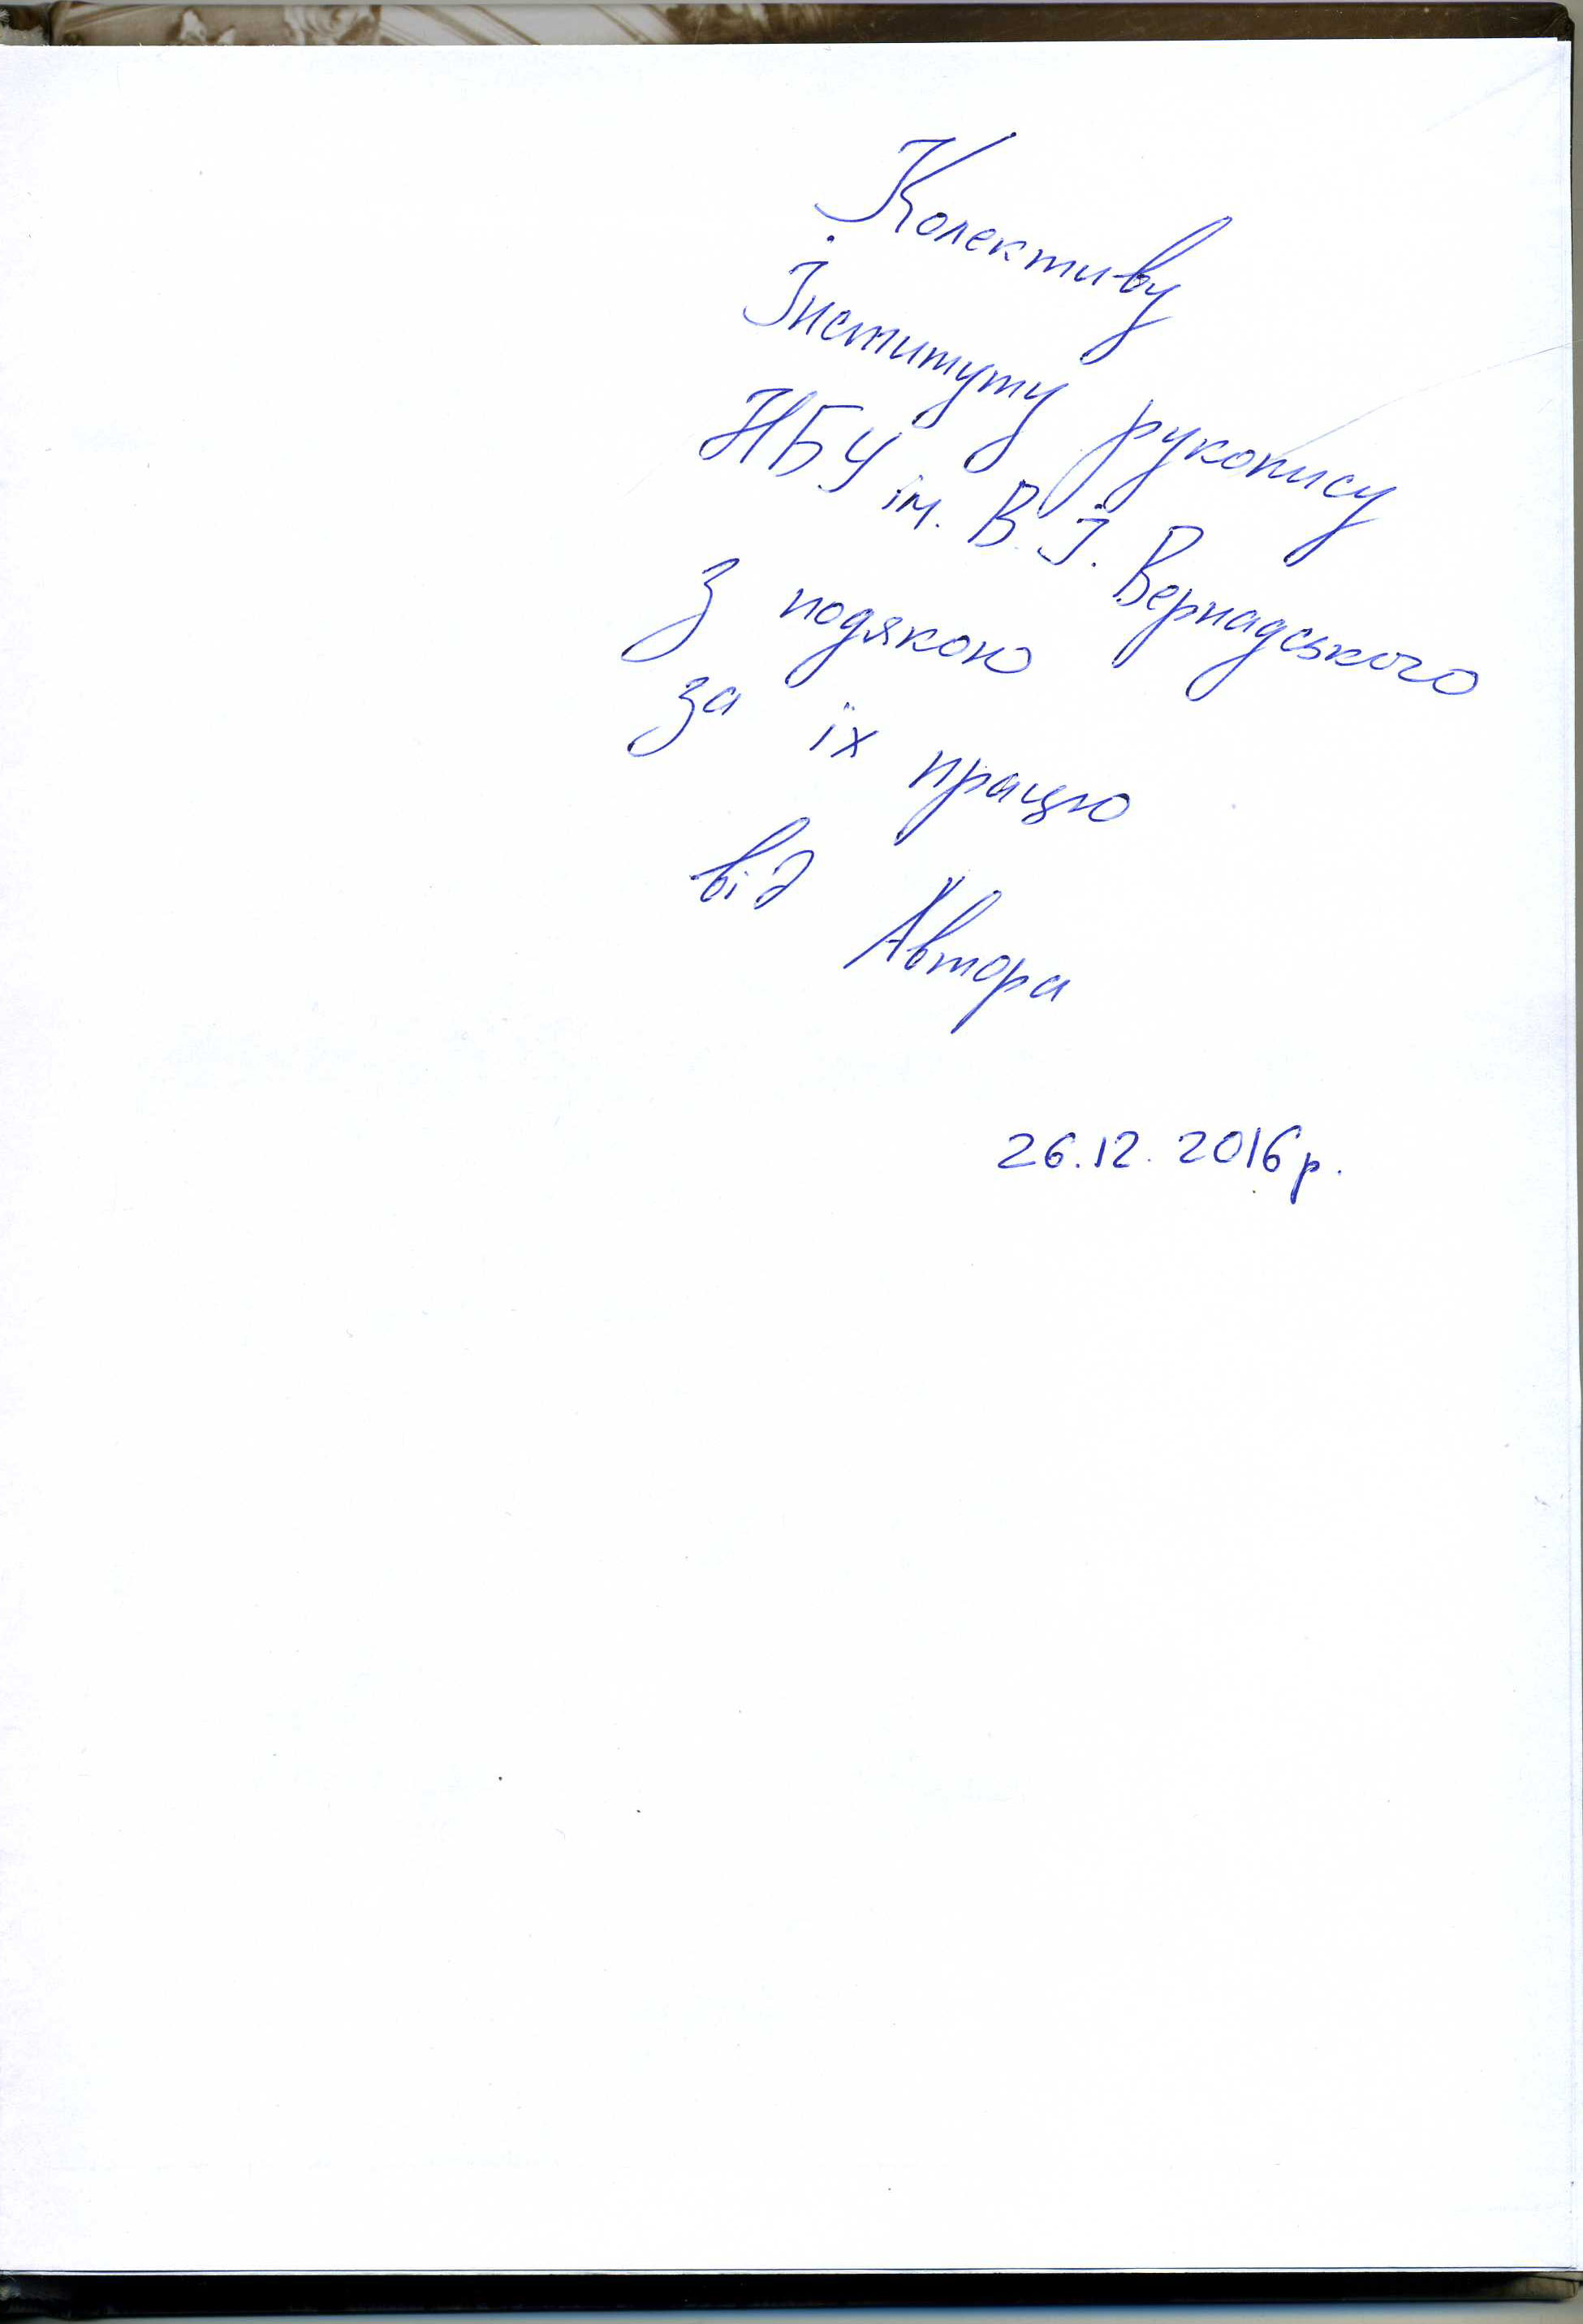 Колективу
Інституту рукопису
НБУ ім. В.І. Вернадського
З подякою
за їх працю
від Автора
26.12.2016р.